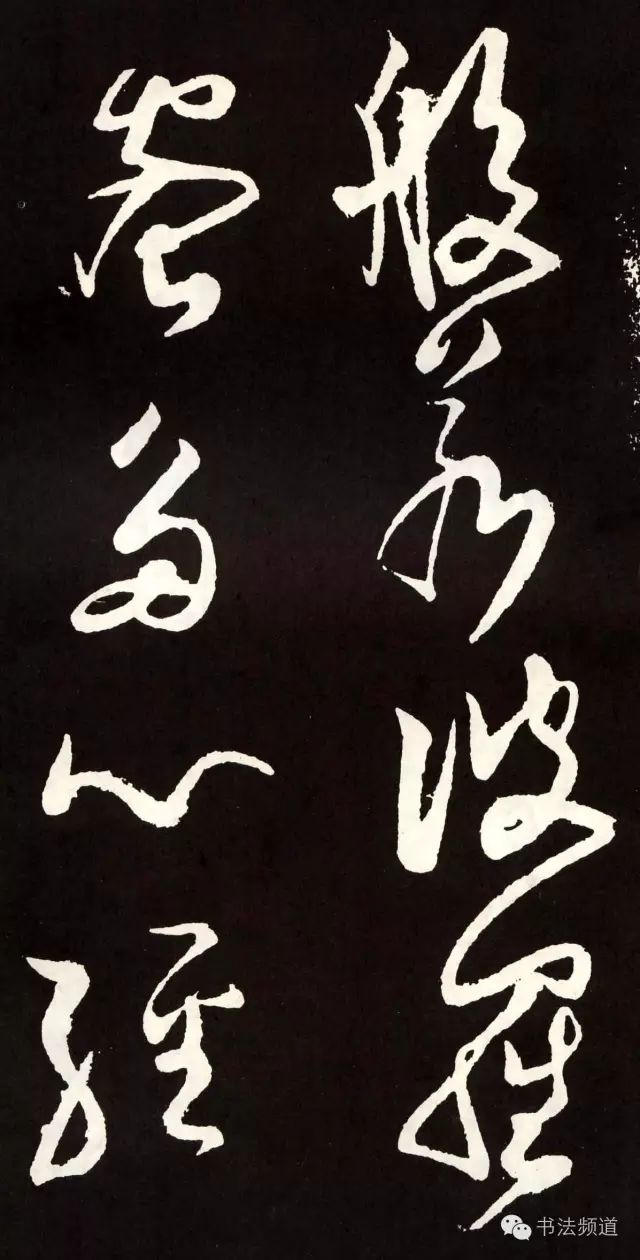 般若波羅
蜜多心經
书法频道